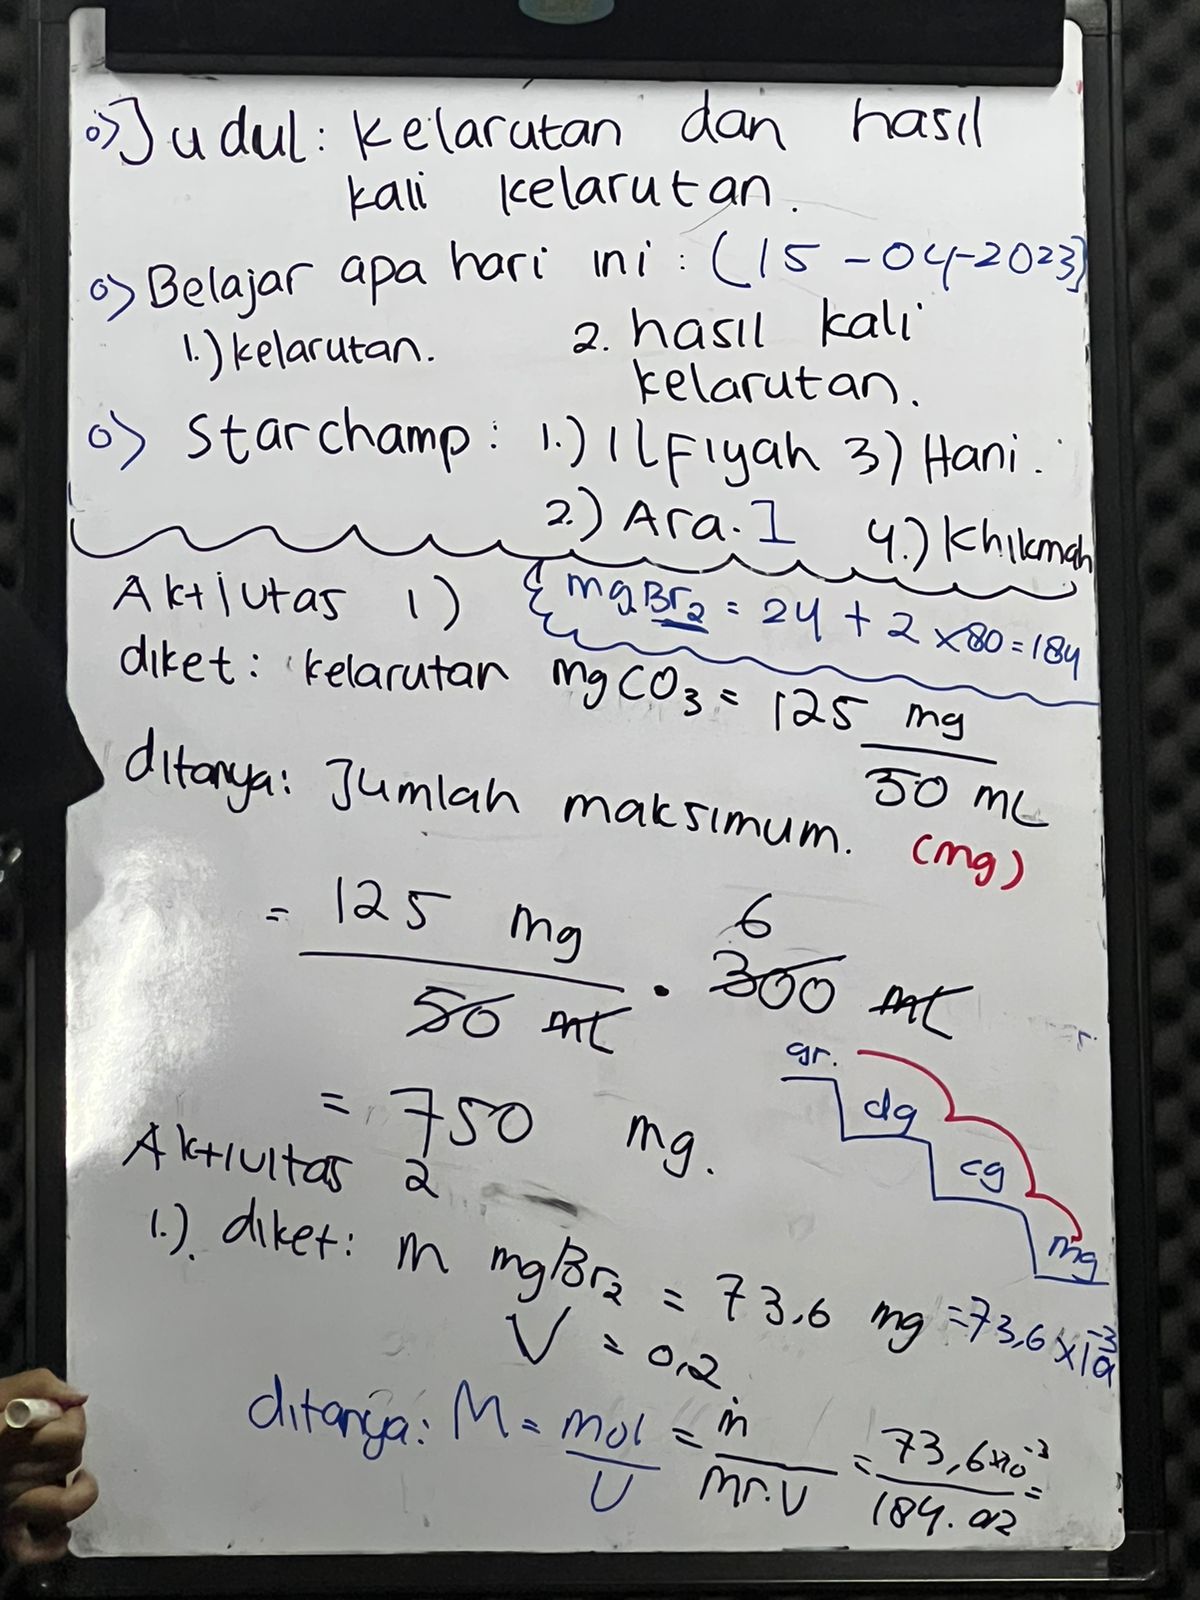 o> Judul: kelarutan dan hasil
kali kelarutan.
o> Belajar apa hari ini : (15-04-2023)
1.) kelarutan. 2. hasil kali
kelarutan.
o> Starchamp: 1.) Ilfiyah 3) Hani.
2.) Ara. I 4.) Khikmah
Aktivtas 1) mgBr₂ = 24 + 2 x80 = 184
diket: kelarutan mgCO₃ = 125 mg
50 mL
ditanya: Jumlah maksimum. (mg)
= 125 mg 6
50 mL . 300 mL
gr.
= 750 mg. dg
Aktivitas 2 cg
mg
1.) diket: m mgBr₂ = 73,6 mg = 73,6 x 10⁻³ g
V = 0,2
ditanya: M = mol = m = 73,6x10⁻³ =
V mr.V 184. 0,2